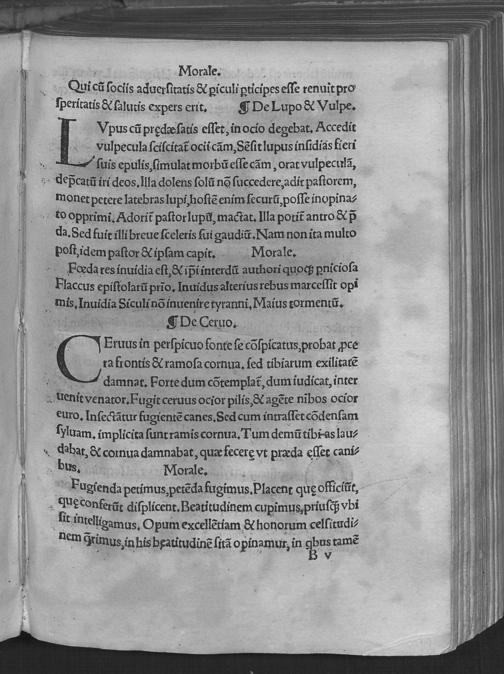 Morale.
Qui cũ sociis aduersitatis & piculi pticipes esse renuit pro
speritatis & salutis expers erit. ¶ De Lupo & Vulpe.
LVpus cũ prędæ satis esset, in ocio degebat. Accedit
vulpecula, sciscitat̃ ocii cãm, Sẽsit lupus insidias fieri
suis epulis, simulat morbũ esse cãm, orat vulpeculã,
dep̃catũ iri deos. Illa dolens solũ nõ succedere, adit pastorem,
monet petere latebras lupi, hostẽ enim securũ, posse inopina⸗
to opprimi. Adorit̃ pastor lupũ, mactat. Illa potit̃ antro & p̃
da. Sed fuit illi breue sceleris sui gaudiũ. Nam non ita multo
post, idem pastor & ipsam capit. Morale.
Fœda res inuidia est, & ip̃i interdũ authori quoqꝫ pniciosa
Flaccus epistolarũ prio. Inuidus alterius rebus marcessit opi
mis. Inuidia Siculi nõ inuenire tyranni. Maius tormentũ.
¶ De Ceruo.
CEruus in perspicuo fonte se cõspicatus, probat ꝓce
ra frontis & ramosa cornua. sed tibiarum exilitatẽ
damnat. Forte dum cõtemplat̃, dum iudicat, inter
uenit venator. Fugit ceruus ocior pilis, & agẽte nibos ocior
euro. Insectãtur fugientẽ canes. Sed cum intrasset cõdensam
syluam. implicita sunt ramis cornua. Tum demũ tibias lau⸗
dabat, & cornua damnabat, quæ fecere vt præda esset cani⸗
bus. Morale.
Fugienda petimus, petẽda fugimus. Placent quę officiũt,
quę conferũt displicent. Beatitudinem cupimus, priusqꝫ vbi
sit intelligamus. Opum excellẽtiam & honorum celsitudi⸗
nem q̃rimus, in his beatitudinẽ sitã opinamur, in qbus tamẽ
B v